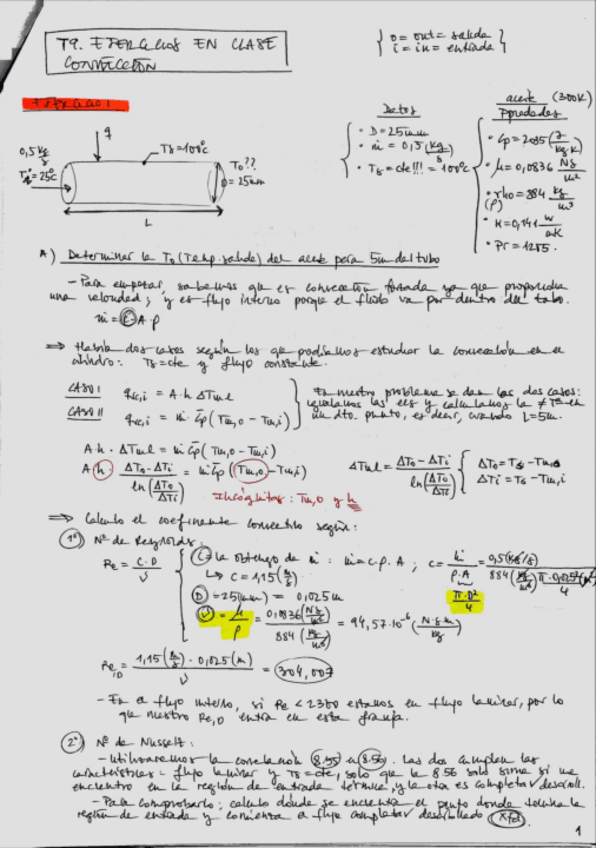 T9. EJERCICIOS EN CLASE
CONVECCIÓN
o = out = salida
i = in = entrada
EJERCICIO 1
q
0,5 kg/s
Ts = 100°C
To??
Ti = 25°C
D = 25mm
L
Datos
• D = 25mm
• ṁ = 0,5 (kg/s)
• Ts = cte!!! = 100°C
aceite (300K)
Propiedades
• Cp = 2035 (J/kg·K)
• μ = 0,0836 N·s/m²
• rho = 884 kg/m³
(ρ)
• K = 0,141 W/mK
• Pr = 1205.
A) Determinar la To (Temp. salida) del aceite para 5m del tubo
- Para empezar, sabemos que es convección forzada ya que proporciona
una velocidad; y es flujo interno porque el fluido va por dentro del tubo.
ṁ = C·A·ρ
⇒ Había dos casos según los que podíamos estudiar la convección en el
cilindro: Ts=cte y flujo constante.
CASO I qcv,i = A·h·ΔTml
CASO II qcv,i = ṁ·Cp (Tm,o - Tm,i)
En nuestro problema se dan los dos casos:
igualamos las ecs y calculamos la ≠T en
un dto. punto, es decir, cuando L=5m.
A·h·ΔTml = ṁ Cp (Tm,o - Tm,i)
A·h· (ΔTo - ΔTi)/ln(ΔTo/ΔTi) = ṁ Cp (Tm,o - Tm,i)
ΔTml = (ΔTo - ΔTi)/ln(ΔTo/ΔTi)
ΔTo = Ts - Tm,o
ΔTi = Ts - Tm,i
Incógnitas: Tm,o y h
⇒ Calculo el coeficiente convectivo según:
1º) Nº de Reynolds:
Re = C·D/ν
C = la obtengo de ṁ: ṁ = c·ρ·A ; c = ṁ/(ρ·A) = 0,5 (kg/s)/(884 (kg/m³) π·0,025²(m²)/4)
↳ C = 1,15 (m/s)
π·D²/4
D = 25(mm) = 0,025m
ν = μ/ρ = 0,0836 (N·s/m²)/884 (kg/m³) = 94,57·10⁻⁶ (N·s·m/kg)
Re,D = 1,15 (m/s) · 0,025 (m)/ν = 304,007
- En el flujo interno, si Re < 2300 estamos en flujo laminar, por lo
que nuestro Re,D entra en esta franja.
2º) Nº de Nusselt:
- Utilizaremos la correlación 8.55 o 8.56. Las dos cumplen las
características = flujo laminar y Ts=cte, solo que la 8.56 solo sirve si me
encuentro en la región de entrada térmica, y la otra es completa/ desarroll.
- Para comprobarlo; calculo dónde se encuentra el punto donde termina la
región de entrada y comienza el flujo completa/ desarrollado Xfd
1